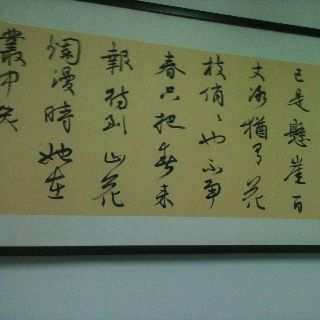 已是懸崖百
丈冰猶有花
枝俏〻也不爭
春只把春來
報待到山花
爛漫時她在
叢中笑